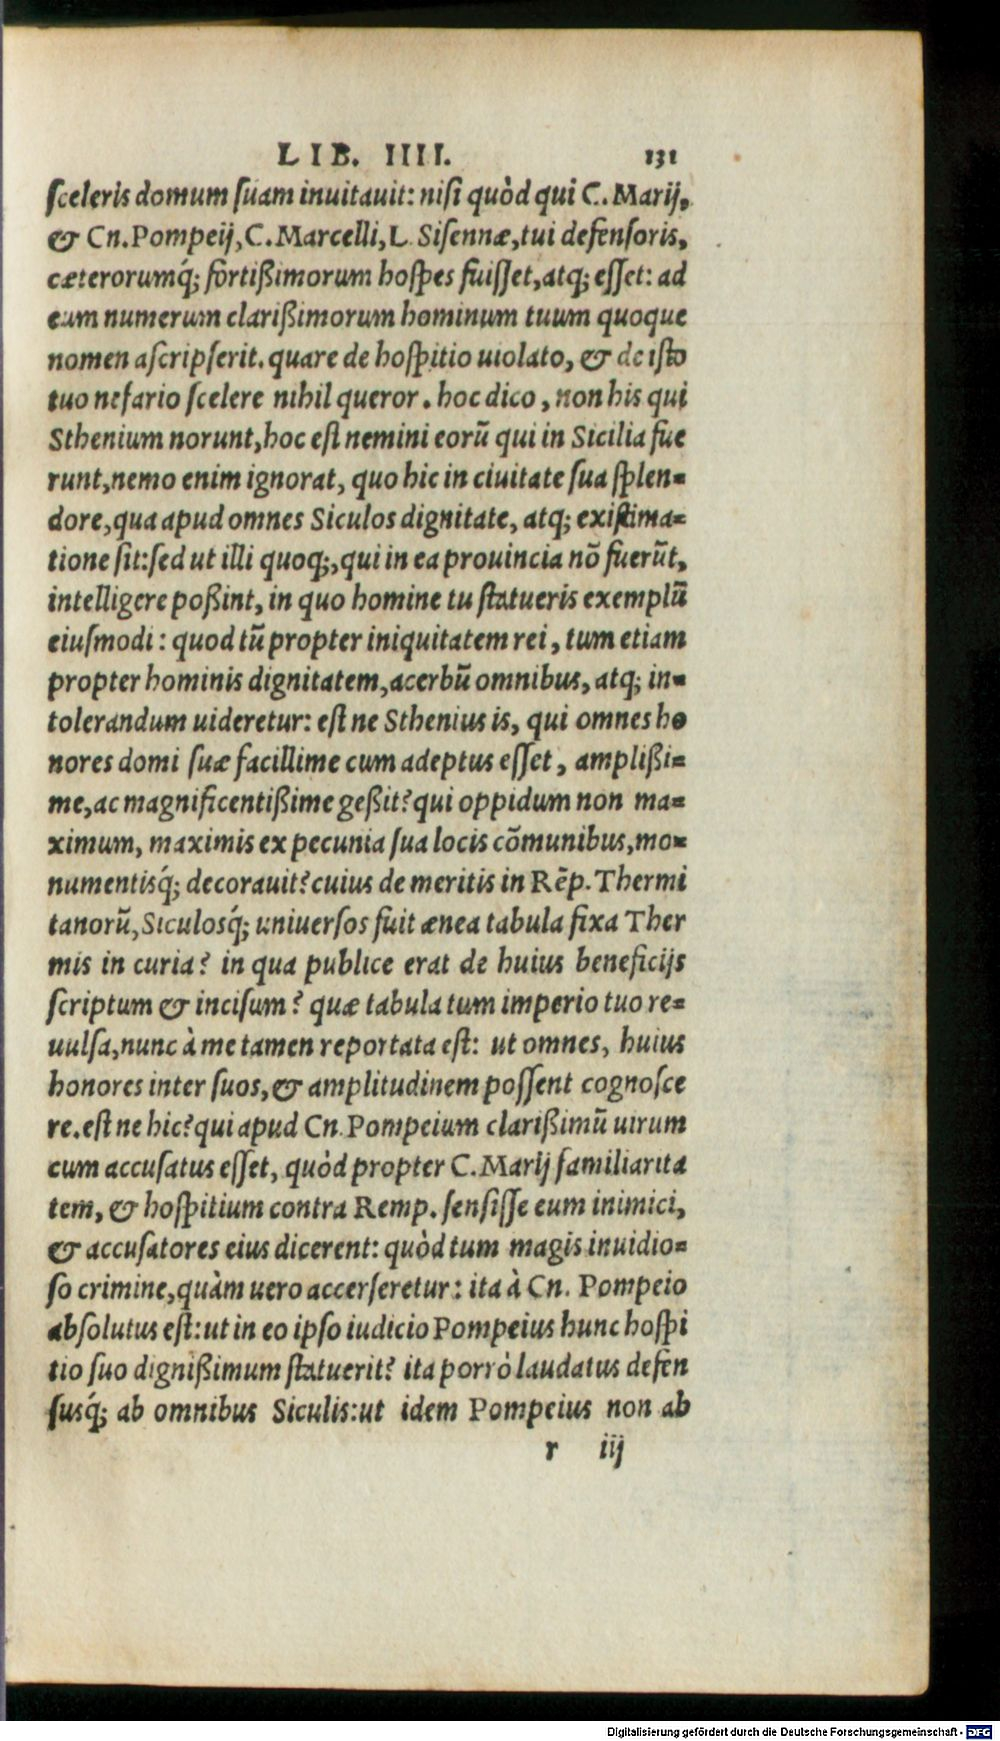 LIB. IIII. 131
sceleris domum suam inuitauit: nisi quòd qui C. Marij,
& Cn. Pompeij, C. Marcelli, L Sisennæ, tui defensoris,
cæterorumq́; fortißimorum hospes fuisset, atq; esset: ad
eum numerum clarißimorum hominum tuum quoque
nomen ascripserit. quare de hospitio uiolato, & de isto
tuo nefario scelere nihil queror. hoc dico, non his qui
Sthenium norunt, hoc est nemini eorũ qui in Sicilia fue
runt, nemo enim ignorat, quo hic in ciuitate sua splen-
dore, qua apud omnes Siculos dignitate, atq; existima-
tione sit: sed ut illi quoq;, qui in ea prouincia nõ fuerũt,
intelligere poßint, in quo homine tu statueris exemplũ
eiusmodi: quod tũ propter iniquitatem rei, tum etiam
propter hominis dignitatem, acerbũ omnibus, atq; in-
tolerandum uideretur: est ne Sthenius is, qui omnes ho
nores domi suæ facillime cum adeptus esset, amplißi-
me, ac magnificentißime geßit? qui oppidum non ma-
ximum, maximis ex pecunia sua locis cõmunibus, mo-
numentisq́; decorauit? cuius de meritis in Rẽp. Thermi
tanorũ, Siculosq́; uniuersos fuit ænea tabula fixa Ther
mis in curia? in qua publice erat de huius beneficijs
scriptum & incisum? quæ tabula tum imperio tuo re-
uulsa, nunc à me tamen reportata est: ut omnes, huius
honores inter suos, & amplitudinem possent cognosce
re. est ne hic? qui apud Cn. Pompeium clarißimũ uirum
cum accusatus esset, quòd propter C. Marij familiarita
tem, & hospitium contra Remp. sensisse eum inimici,
& accusatores eius dicerent: quòd tum magis inuidio-
so crimine, quàm uero accerseretur: ita à Cn. Pompeio
absolutus est: ut in eo ipso iudicio Pompeius hunc hospi
tio suo dignißimum statuerit? ita porrò laudatus defen
susq́; ab omnibus Siculis: ut idem Pompeius non ab
r iij
Digitalisierung gefördert durch die Deutsche Forschungsgemeinschaft - DFG